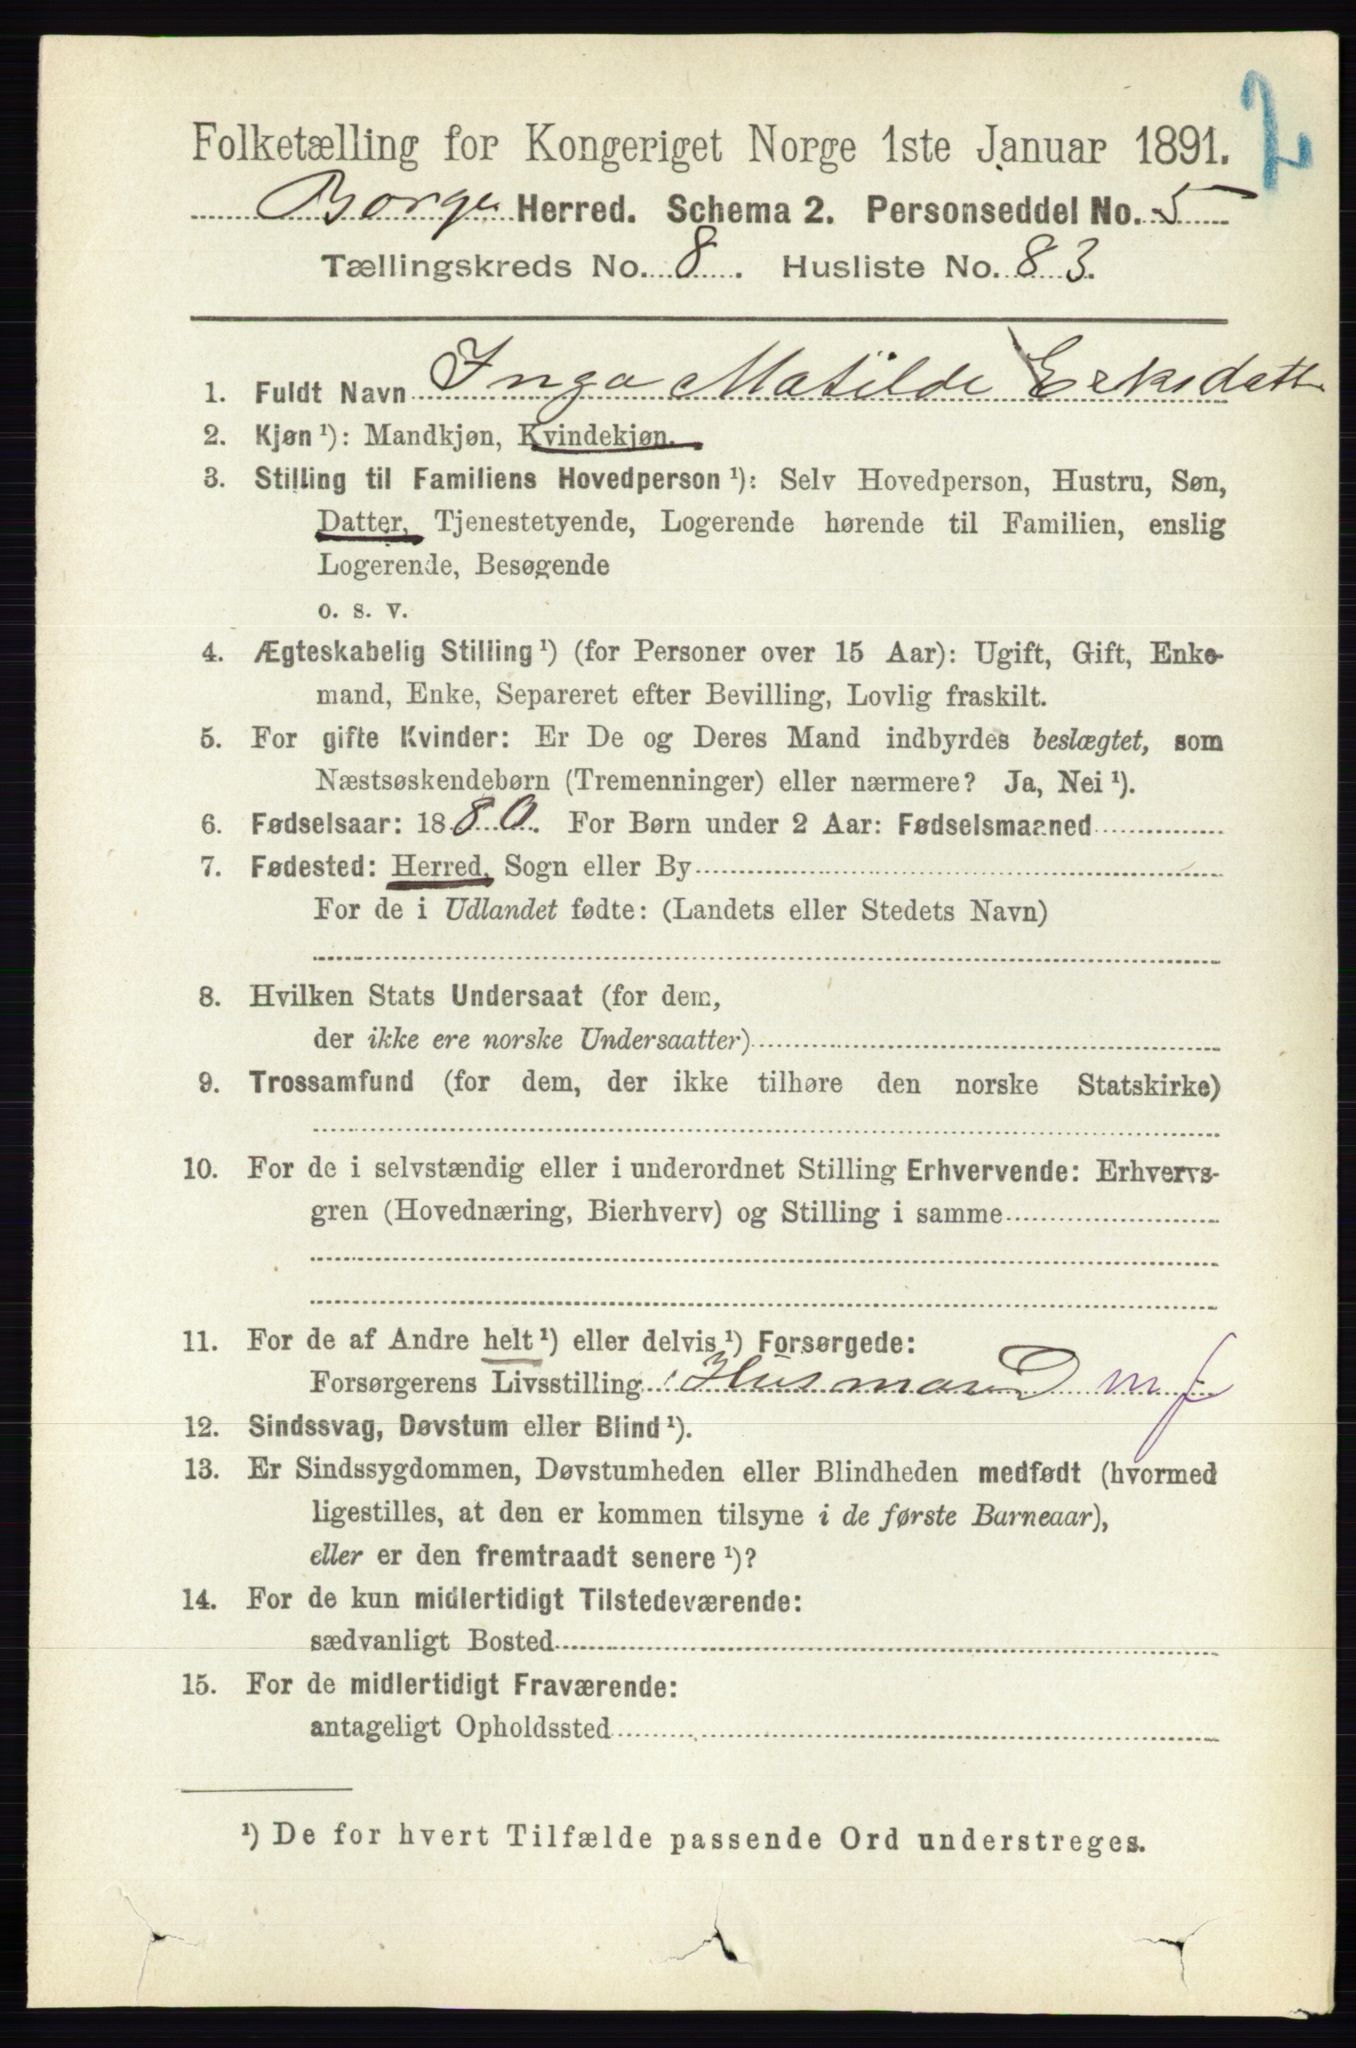 2
Folketælling for Kongeriget Norge 1ste Januar 1891.
Borge Herred. Schema 2. Personseddel No. 5
Tællingskreds No. 8. Husliste No. 83.
1. Fuldt Navn Inga Matilde Eriksdatt
2. Kjøn ¹): Mandkjøn, Kvindekjøn.
3. Stilling til Familiens Hovedperson ¹): Selv Hovedperson, Hustru, Søn,
Datter, Tjenestetyende, Logerende hørende til Familien, enslig
Logerende, Besøgende
o. s. v.
4. Ægteskabelig Stilling ¹) (for Personer over 15 Aar): Ugift, Gift, Enke-
mand, Enke, Separeret efter Bevilling, Lovlig fraskilt.
5. For gifte Kvinder: Er De og Deres Mand indbyrdes beslægtet, som
Næstsøskendebørn (Tremenninger) eller nærmere? Ja, Nei ¹).
6. Fødselsaar: 1880. For Børn under 2 Aar: Fødselsmaaned
7. Fødested: Herred, Sogn eller By
For de i Udlandet fødte: (Landets eller Stedets Navn)
8. Hvilken Stats Undersaat (for dem,
der ikke ere norske Undersaatter)
9. Trossamfund (for dem, der ikke tilhøre den norske Statskirke)
10. For de i selvstændig eller i underordnet Stilling Erhvervende: Erhvervs-
gren (Hovednæring, Bierhverv) og Stilling i samme
11. For de af Andre helt ¹) eller delvis ¹) Forsørgede:
Forsørgerens Livsstilling Husmand m j
12. Sindssvag, Døvstum eller Blind ¹).
13. Er Sindssygdommen, Døvstumheden eller Blindheden medfødt (hvormed
ligestilles, at den er kommen tilsyne i de første Barneaar),
eller er den fremtraadt senere ¹)?
14. For de kun midlertidigt Tilstedeværende:
sædvanligt Bosted
15. For de midlertidigt Fraværende:
antageligt Opholdssted
¹) De for hvert Tilfælde passende Ord understreges.